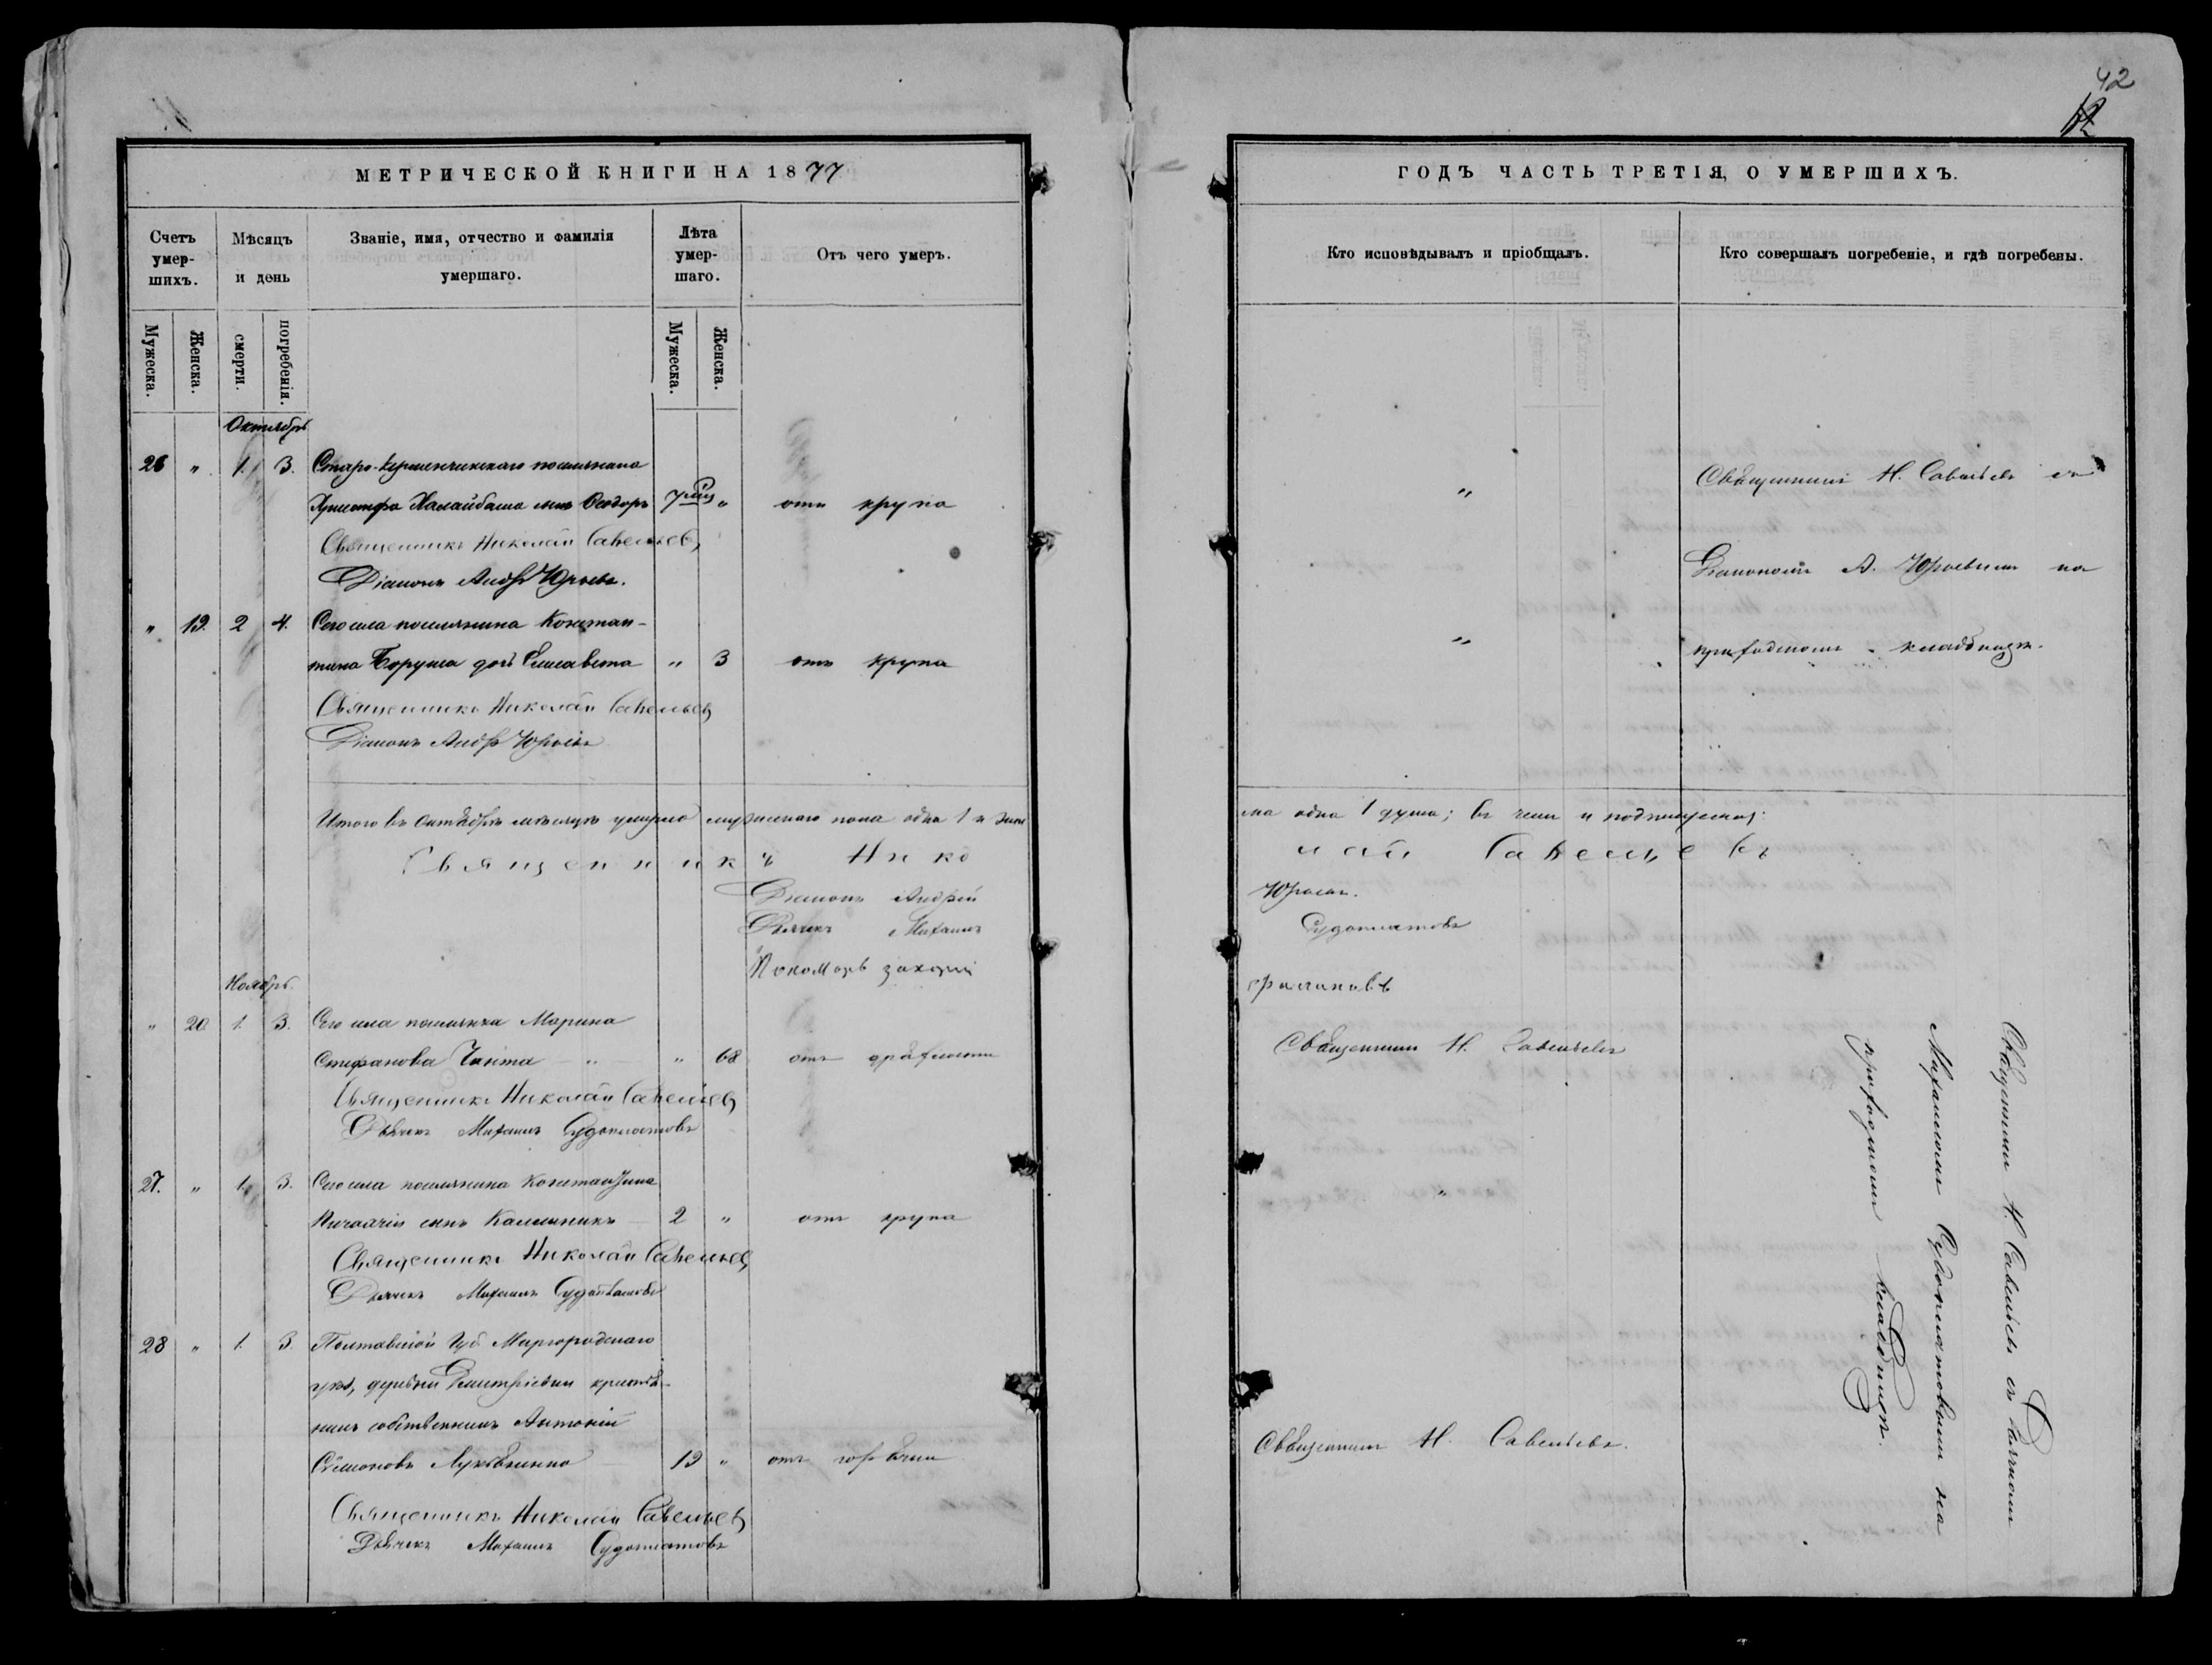 42
МЕТРИЧЕСКОЙ КНИГИ НА 1877
ГОДЪ ЧАСТЬ ТРЕТІЯ, О УМЕРШИХЪ.
Счетъ умер-шихъ.
Мѣсяцъ и день
Званіе, имя, отчество и фамилія умершаго.
Лѣта умер-шаго.
Отъ чего умеръ.
Кто исповѣдывалъ и пріобщалъ.
Кто совершалъ погребеніе, и гдѣ погребены.
Мужеска.
Женска.
смерти.
погребенія.
Мужеска.
Женска.
Октябрь
26 " 1. 3. Старо-Керменчикскаго поселянина
Христофа Халайбаша сынъ Ѳеодоръ 7 " отъ крупа " Священникъ Н. Савельевъ съ
Священникъ Николай Савельевъ
Діаконъ Андр. Юрьевъ. Діакономъ А. Юрьевымъ на
" 19. 2 4. Сего села поселянина Констан-
тина дочь Елисавета " 3 отъ крупа " приходскомъ кладбищѣ.
Священникъ Николай Савельевъ
Діаконъ Андр. Юрьевъ
Итого въ Октябрѣ мѣсяцѣ умерло мужескаго пола одна 1 и жен
ска одна 1 душа; въ чемъ и подпишемся:
Священникъ Нико
лай Савельевъ
Діаконъ Андрей
Юрьевъ.
Дьячекъ Михаилъ
Судоплатовъ
Пономарь Захарій
Филиповъ
Ноябрь.
" 20 1. 3. Сего села поселянка Марина
Стефанова Чанта " " 68 отъ дряхлости Священникъ Н. Савельевъ
Священникъ Николай Савельевъ
Дьячекъ Михаилъ Судоплатовъ
27. " 1. 3. Сего села поселянина Константина
сынъ Каллиникъ 2 " отъ крупа "
Священникъ Николай Савельевъ
Дьячекъ Михаилъ Судоплатовъ
28 " 1. 3. Полтавской Губ. Миргородскаго
уѣз, деревни Дмитріевки крестья-
нинъ собственникъ Антоній
Семоновъ 19 " отъ горячки Священникъ Н. Савельевъ.
Священникъ Николай Савельевъ
Дьячекъ Михаилъ Судоплатовъ
Священникъ Н. Савельевъ съ Дьячкомъ
Михаиломъ Судоплатовымъ на
приходскомъ кладбищѣ.